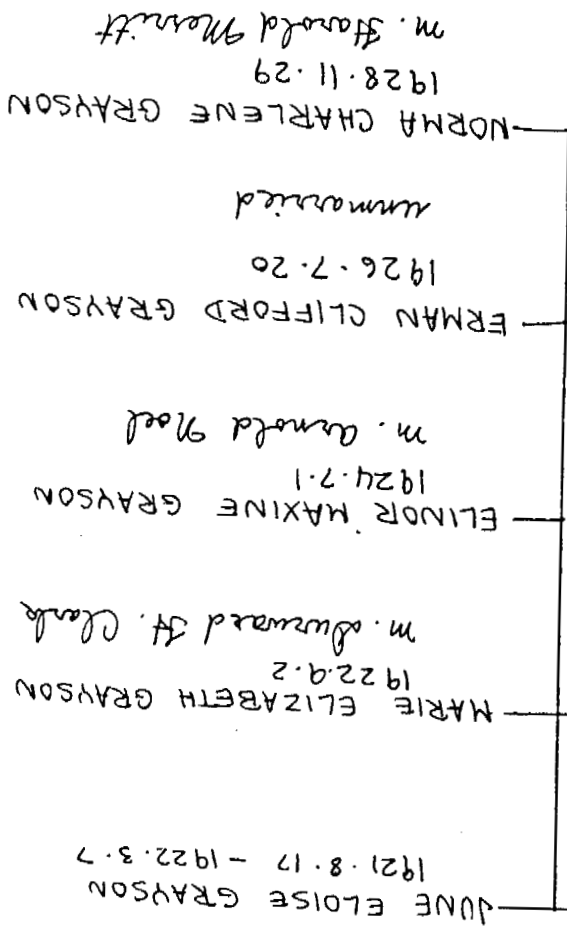 JUNE ELOISE GRAYSON
1921.8.17 - 1922.3.7
MARIE ELIZABETH GRAYSON
1922.9.2
m. Durward H. Clark
ELINOR MAXINE GRAYSON
1924.7.1
m. Arnold Noel
ERMAN CLIFFORD GRAYSON
1926.7.20
unmarried
NORMA CHARLENE GRAYSON
1928.11.29
m. Harold Merritt